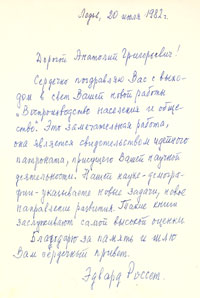 Лодзь, 20 июля 1982 г.
Дорогой Анатолий Григорьевич!
Сердечно поздравляю Вас с выхо-
дом в свет Вашей новой работы
"Воспроизводство населения и обще-
ство". Это замечательная работа,
она является свидетельством идейного
присущего Вашей научной
деятельности. Нашей науке-демогра-
фии-указываете новые задачи, новое
направление развития. Такие книги
заслуживают самой высокой оценки
Благодарю за память и шлю
Вам сердечный привет.
Эдвард Россет.